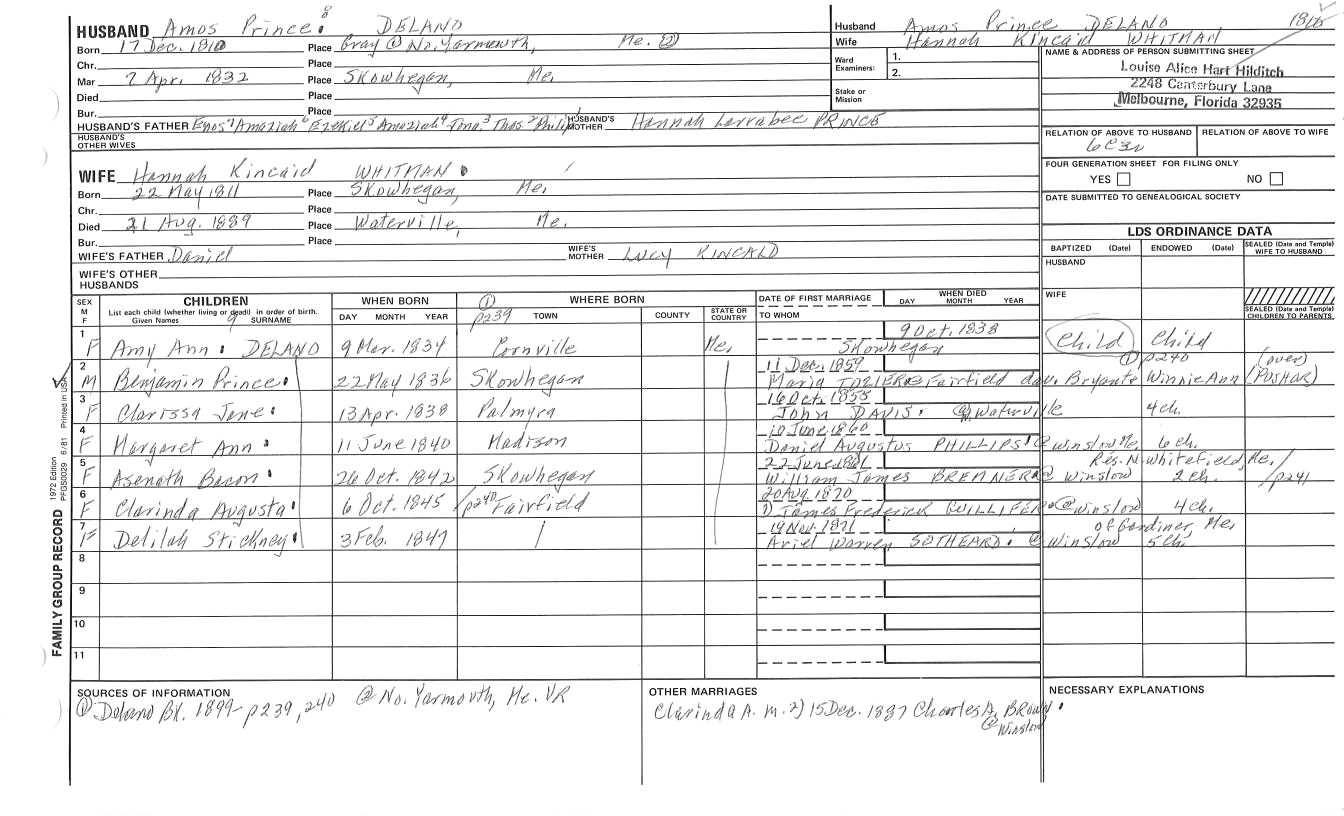 HUSBAND Amos Prince 8 DELAND
Born 17 Dec. 1810 Place Gray @ No. Yarmouth, Me. ②
Chr. Place
Mar 7 Apr. 1832 Place Skowhegan, Me.
Died Place
Bur. Place
HUSBAND'S FATHER Enos 7 Amaziah 6 Ezekiel 5 Amaziah 4 Jona. 3 Thos. 2 Philip 1 HUSBAND'S MOTHER Hannah Larrabee PRINCE
HUSBAND'S OTHER WIVES
Husband Amos Prince DELAND 1810
Wife Hannah Kincaid WHITMAN
Ward Examiners: 1.
2.
Stake or Mission
NAME & ADDRESS OF PERSON SUBMITTING SHEET
Louise Alice Hart Hilditch
2248 Canterbury Lane
Melbourne, Florida 32935
RELATION OF ABOVE TO HUSBAND RELATION OF ABOVE TO WIFE
6C3R
FOUR GENERATION SHEET FOR FILING ONLY
YES NO
DATE SUBMITTED TO GENEALOGICAL SOCIETY
WIFE Hannah Kincaid WHITMAN
Born 22 May 1811 Place Skowhegan, Me.
Chr. Place
Died 21 Aug. 1889 Place Waterville, Me.
Bur. Place
WIFE'S FATHER Daniel WIFE'S MOTHER Lucy KINCALD
WIFE'S OTHER HUSBANDS
LDS ORDINANCE DATA
BAPTIZED (Date) ENDOWED (Date) SEALED (Date and Temple) WIFE TO HUSBAND
HUSBAND
WIFE
SEALED (Date and Temple) CHILDREN TO PARENTS
SEX M F CHILDREN WHEN BORN ① WHERE BORN DATE OF FIRST MARRIAGE WHEN DIED
List each child (whether living or dead) in order of birth. DAY MONTH YEAR p239 TOWN COUNTY STATE OR COUNTRY TO WHOM DAY MONTH YEAR
Given Names 9 SURNAME
1 F Amy Ann DELAND 9 Mar. 1834 Cornville Me. 9 Oct. 1838 Skowhegan Child Child
2 11 Dec. 1859 ① p240 (over)
M Benjamin Prince 22 May 1836 Skowhegan Maria TOZIER @ Fairfield dau. Bryante Winnie Ann (PUSHAR)
3 16 Oct. 1855
F Clarissa Jane 13 Apr. 1838 Palmyra John DAVIS @ Waterville 4 ch.
4 10 June 1860
F Margaret Ann 11 June 1840 Madison Daniel Augustus PHILLIPS @ Winslow Me, 6 Ch.
5 22 June 1861 Res. N. Whitefield, Me.
F Asenath Bacon 26 Oct. 1842 Skowhegan William James BREANER @ Winslow 2 Ch. /p241
6 20 Aug 1870
F Clarinda Augusta 6 Oct. 1845 /p240 Fairfield 1) James Frederick @ Winslow 4 Ch.
7 19 Nov. 1871 of Gardiner, Me.
F Delilah Stickney 3 Feb. 1847 Ariel Warren SOTHEARD @ Winslow 5 Ch.
8
9
10
11
SOURCES OF INFORMATION
① Deland Bk. 1899- p239, 240 ② No. Yarmouth, Me. VR
OTHER MARRIAGES
Clarinda A. m. 2) 15 Dec. 1887 Charles A. BROWN
@ Winslow
NECESSARY EXPLANATIONS
FAMILY GROUP RECORD 1972 Edition PFGS0029 6/81 Printed in USA